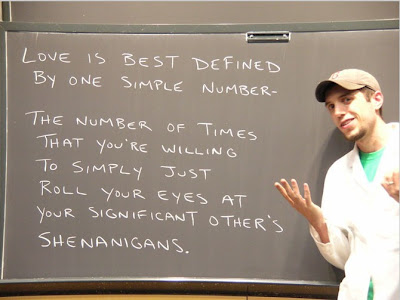 LOVE IS BEST DEFINED
BY ONE SIMPLE NUMBER-
THE NUMBER OF TIMES
THAT YOU'RE WILLING
TO SIMPLY JUST
ROLL YOUR EYES AT
YOUR SIGNIFICANT OTHER'S
SHENANIGANS.